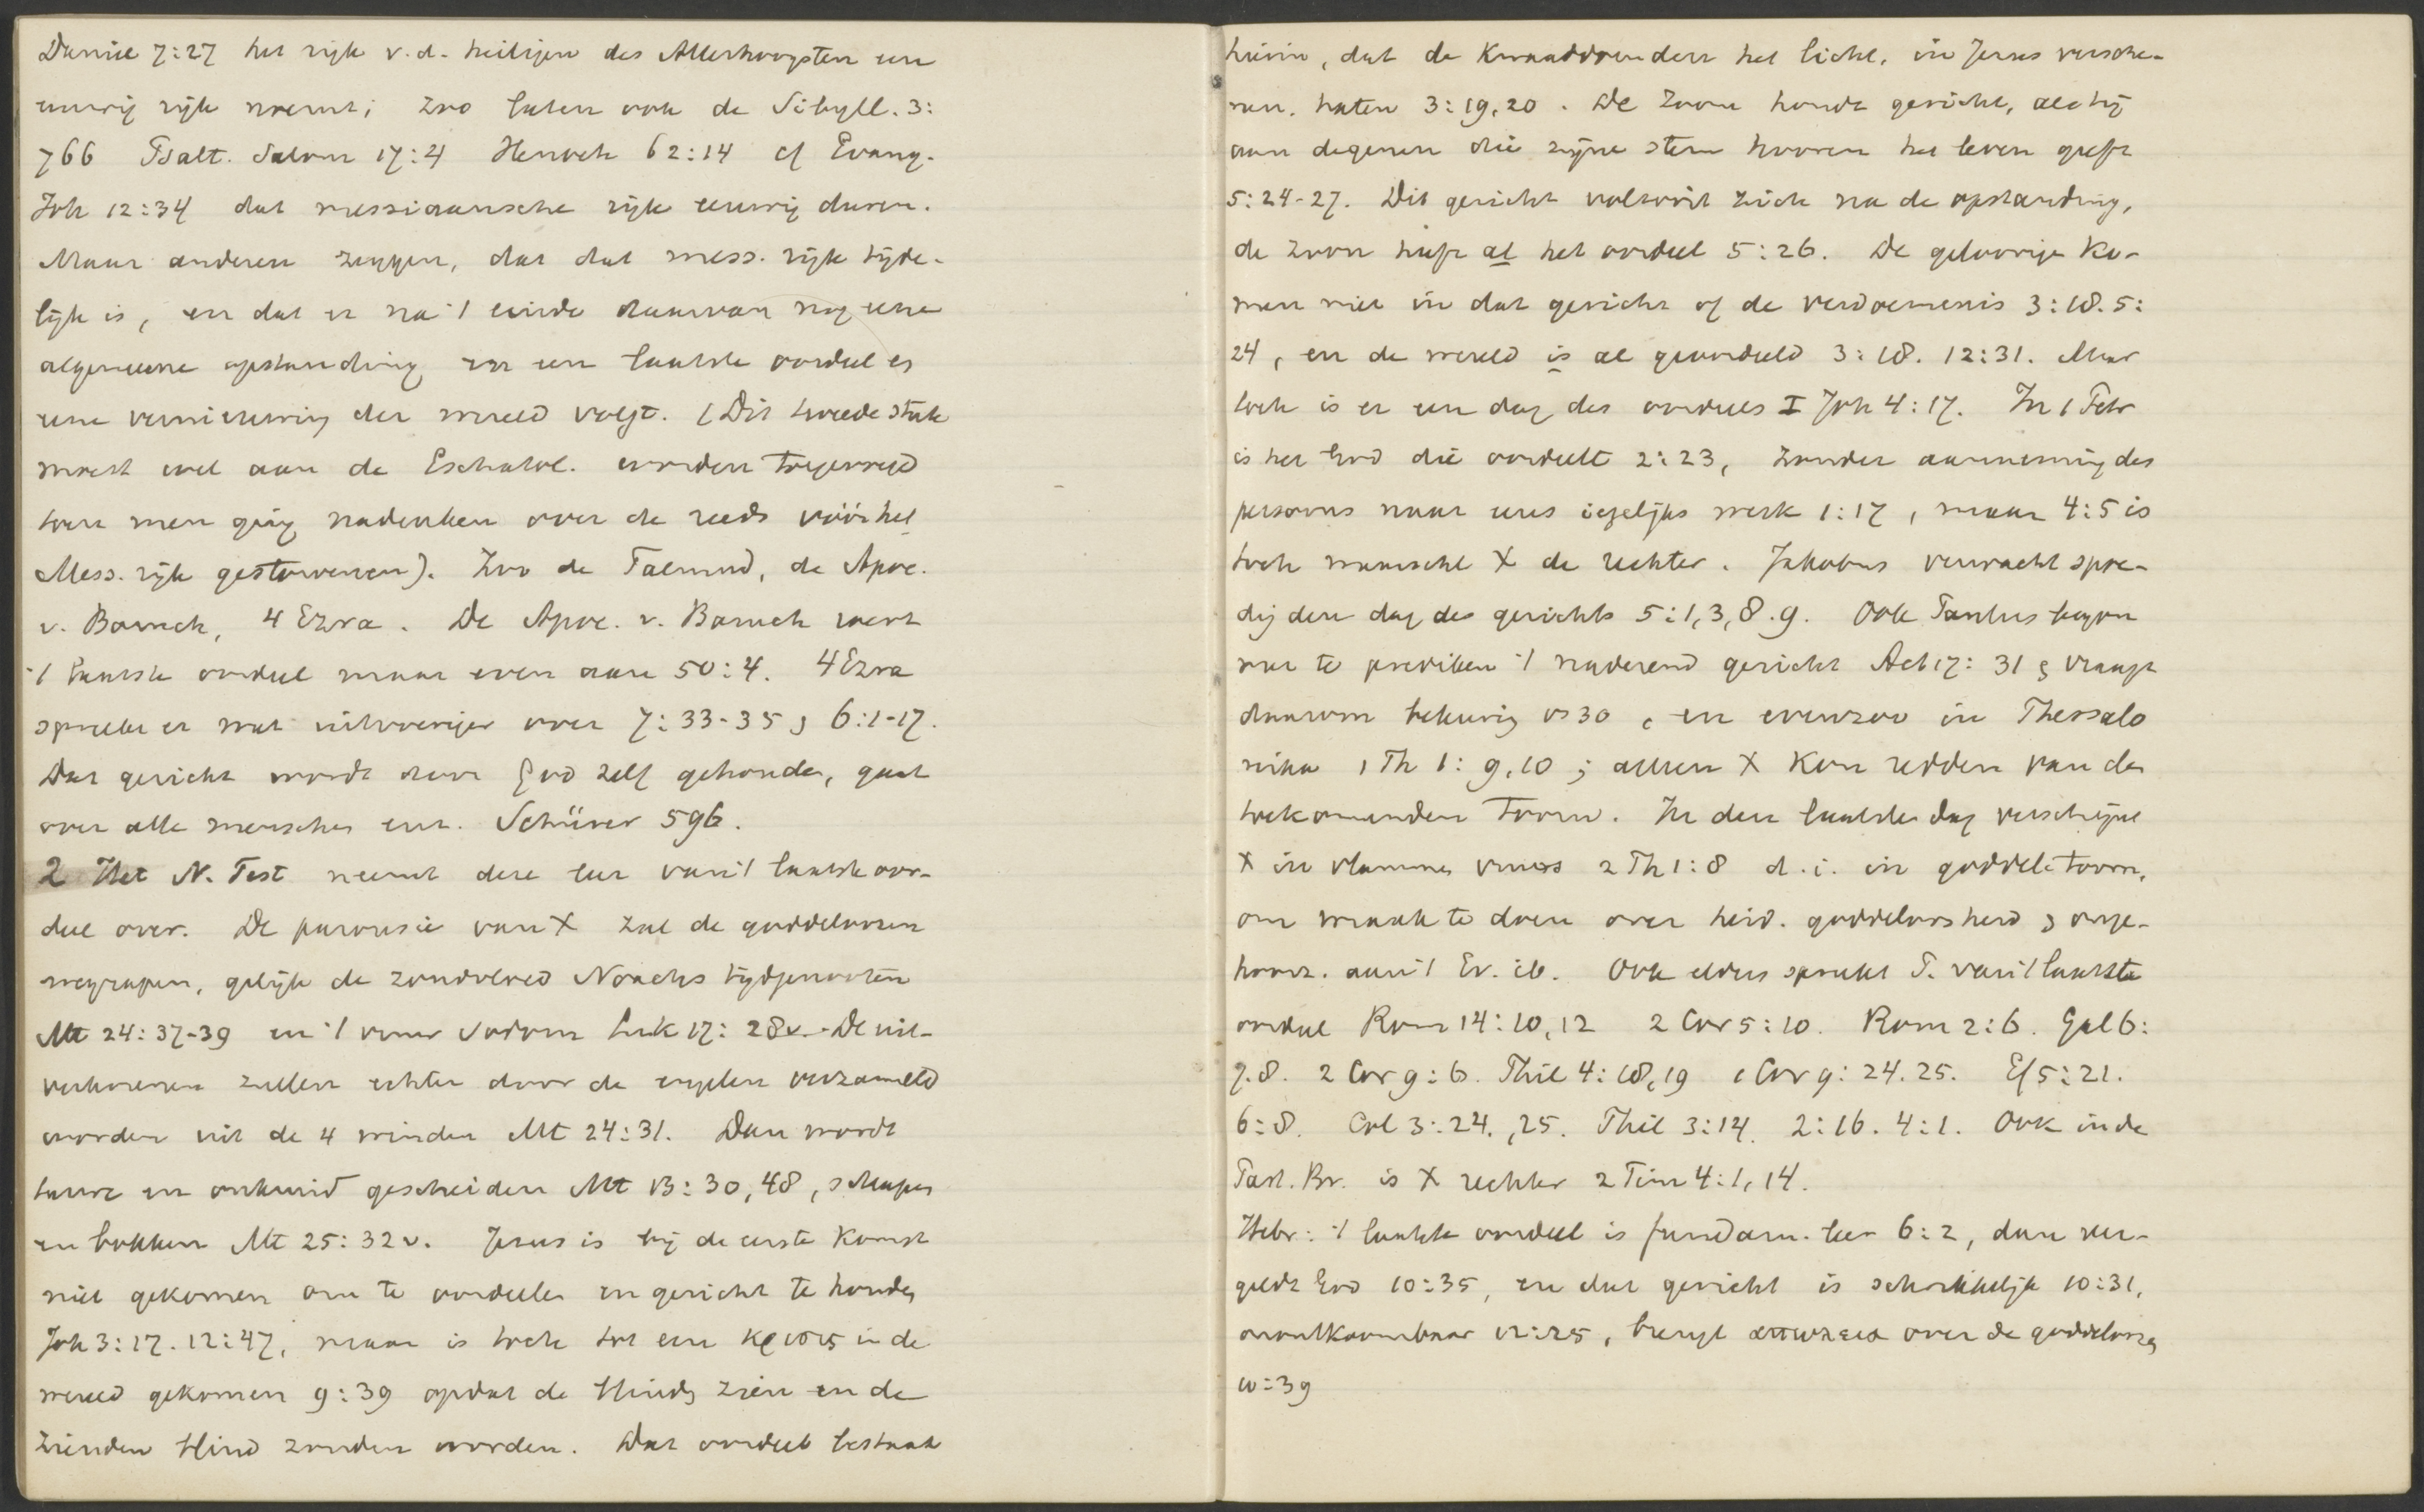 Daniel 7:27 het rijk v.d. heiligen des Allerhoogsten een
eeuwig rijk noemt; zoo laten ook de Sibyll. 3:
766 Psalt. Salom 17:4 Henoch 62:14 cf Evang.
Joh 12:34 dat messiaansche rijk eeuwig duren.
Maar anderen zeggen, dat dat mess. rijk tijde-
lijk is, en dat er na 't einde daarvan nog eene
algemeene opstanding en een laatste oordeel en
eene vernieuwing der wereld volgt. (Dit tweede stuk
moest wel aan de Eschatol. worden toegevoegd
toen men ging nadenken over de reeds vóór het
Mess. rijk gestorvenen). Zoo de Talmud, de Apoc.
v. Baruch, 4 Ezra. De Apoc. v. Baruch roert
't laatste oordeel maar even aan 50:4. 4 Ezra
spreekt er wat uitvoeriger over 7:33-35 & 6:1-17.
Dat gericht wordt door God zelf gehouden, gaat
over alle menschen enz. Schürer 596.
2 Het N. Test neemt deze leer van 't laatste oor-
deel over. De parousie van X zal de goddeloozen
wegrapen, gelijk de zondvloed Noachs tijdgenooten
Mt 24:37-39 en 't vuur Sodom Luk 17:28v. De uit-
verkorenen zullen echter door de engelen verzameld
worden uit de 4 winden Mt 24:31. Dan wordt
tarwe en onkruid gescheiden Mt 13:30,48, schapen
en bokken Mt 25:32v. Jesus is bij de eerste komst
niet gekomen om te oordeelen en gericht te houden
Joh 3:17. 12:47, maar is toch tot een κρισις in de
wereld gekomen 9:39 opdat de blinden zien en de
zienden blind zouden worden. Dat oordeel bestaat
hierin, dat de kwaaddoenders het licht, in Jesus versche-
nen, haten 3:19,20. De Zoon houdt gericht, als hij
aan degenen die zijne stem hooren het leven geeft
5:24-27. Dit gericht voltooit zich na de opstanding,
de zoon heeft al het oordeel 5:26. De geloovige ko-
men niet in dat gericht of de verdoemenis 3:18. 5:
24, en de wereld is al geoordeeld 3:18. 12:31. Maar
toch is er een dag des oordeels I Joh 4:17. In 1 Petr
is het God die oordeelt 2:23, zonder aanneming des
persoons naar eens iegelijks werk 1:17, maar 4:5 is
toch waarschl X de rechter. Jakobus verwacht spoe-
dig den dag des gerichts 5:1,3,8.9. Ook Paulus begon
met te prediken 't naderend gericht Act 17:31 & vraagt
daarom bekeering vs 30, en evenzoo in Thessalo
nika 1 Th 1:9,10; alleen X kon redden van den
toekomenden toorn. In den laatsten dag verschijnt
X in vlammen vuurs 2 Th 1:8 d.i. in goddel. toorn,
om wraak te doen over heid. goddeloosheid & onge-
hoorz. aan 't Ev. ib. Ook elders spreekt P. van 't laatste
oordeel Rom 14:10,12 2 Cor 5:10. Rom 2:6. Gal 6:
7.8. 2 Cor 9:6. Phil 4:18,19 1 Cor 9:24.25. Ef 5:21.
6:8. Col 3:24.,25. Phil 3:14. 2:16. 4:1. Ook in de
Past. Br. is X rechter 2 Tim 4:1,14.
Hebr: 't laatste oordeel is fundam. leer 6:2, dan ver-
geldt God 10:35, en dat gericht is schrikkelijk 10:31,
onontkoombaar 12:25, brengt απωλεια over de goddeloozen
10:39